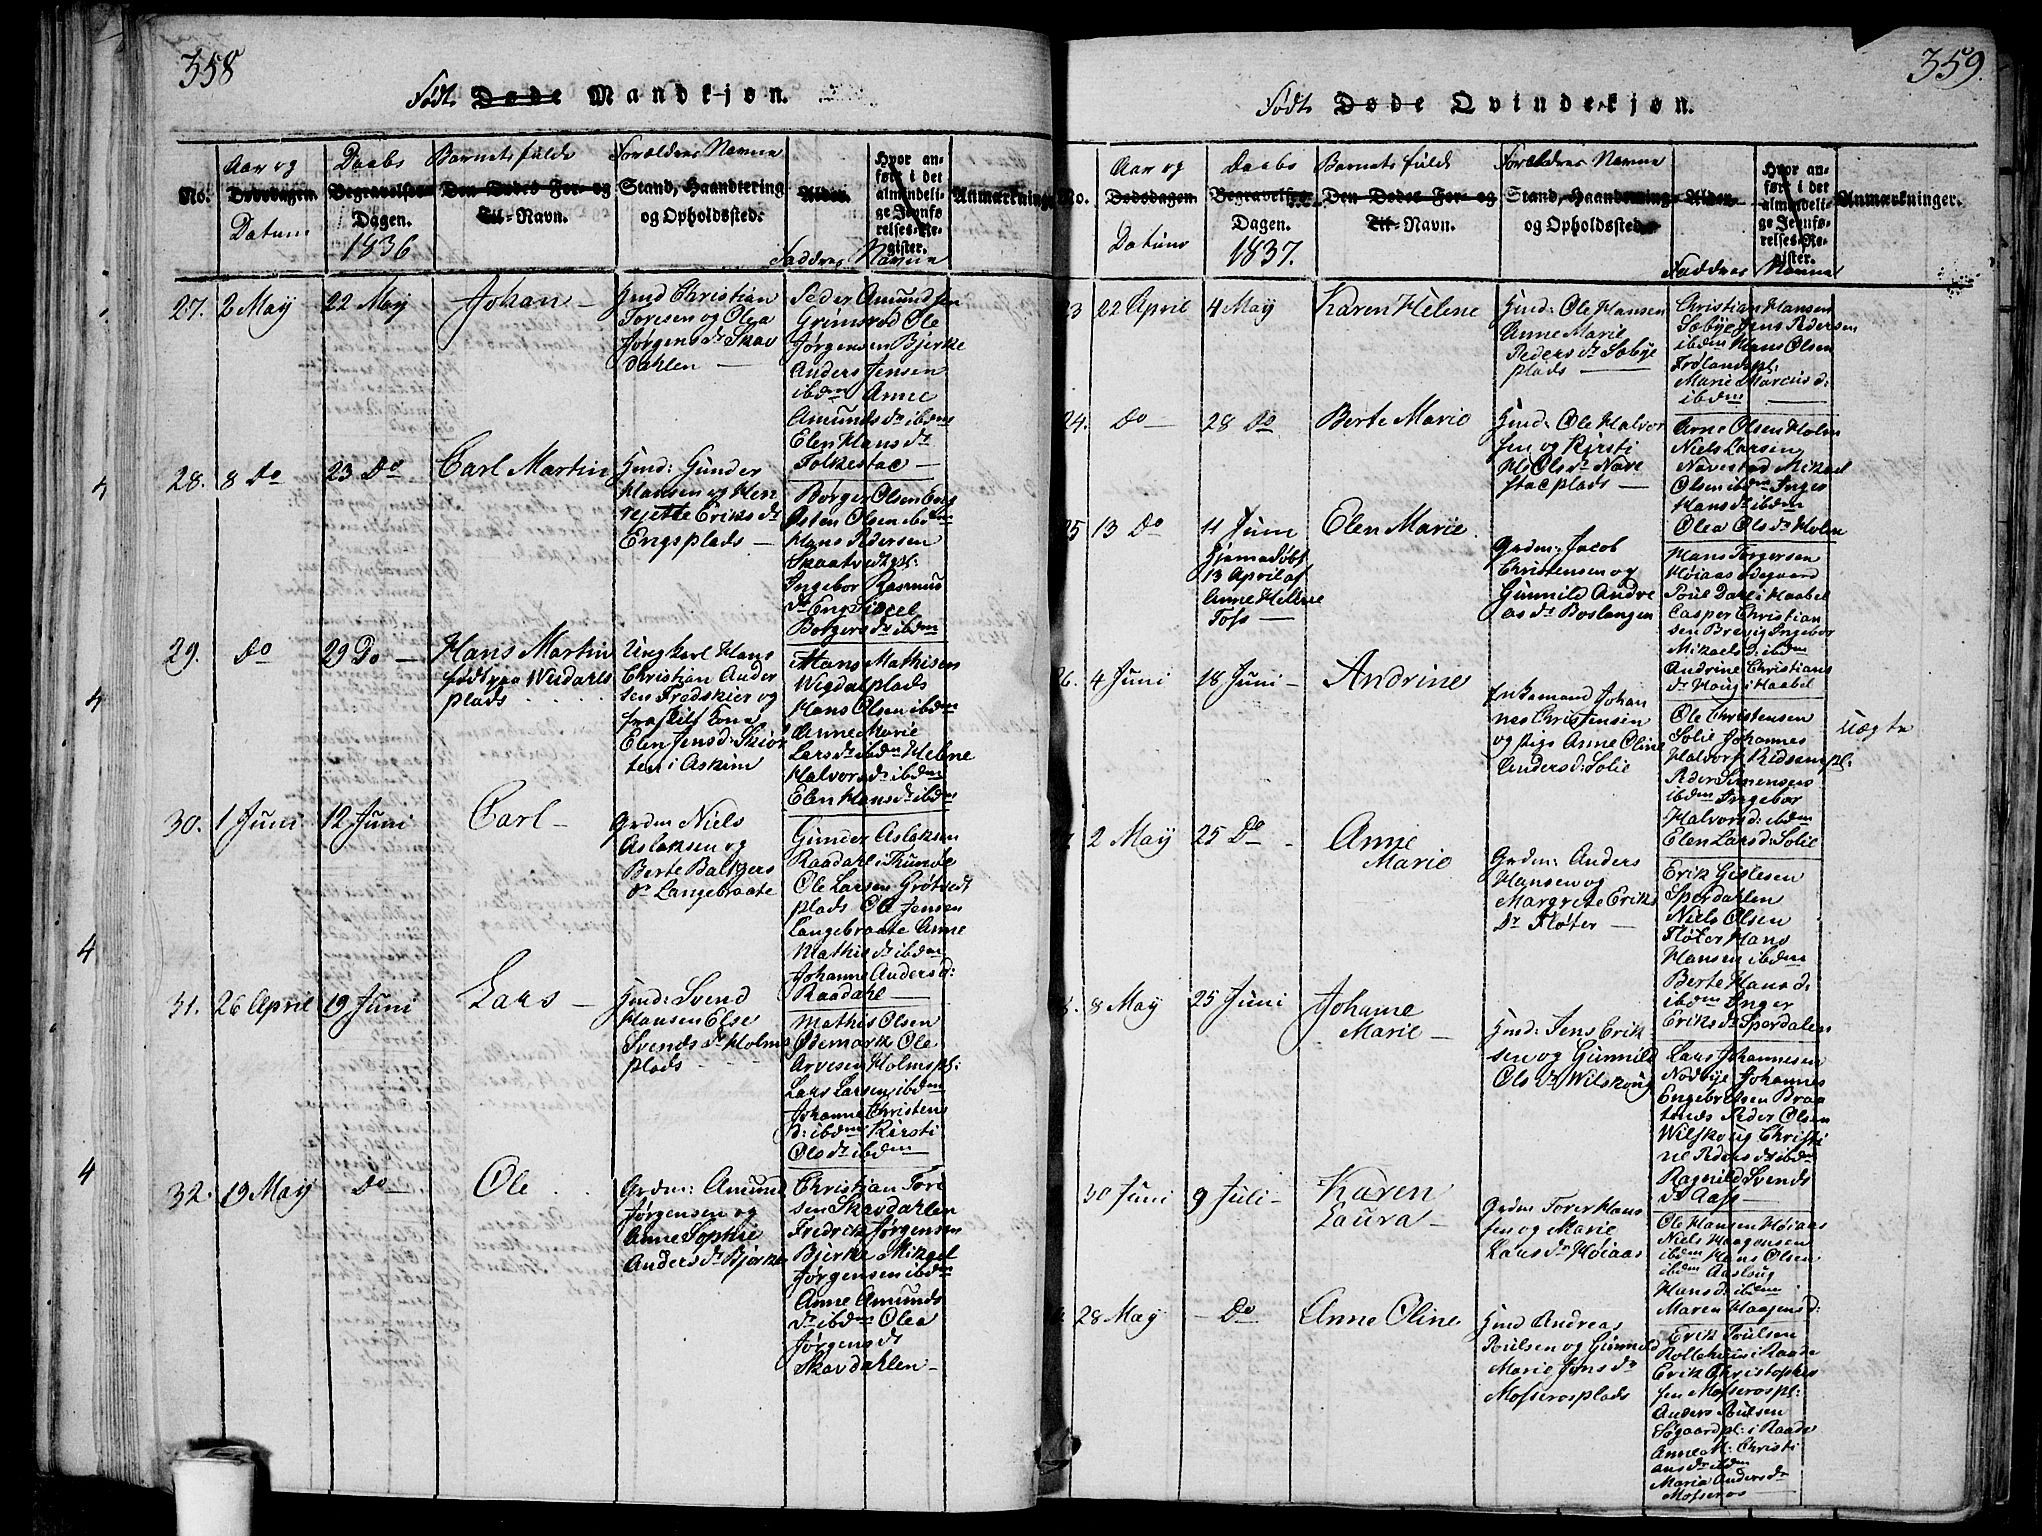 358
Født Døde Mandkjøn.
No.
Aar og
Dødsdagen.
Datum
Daabs
Begravelses
Dagen.
1836
Barnets fulde
Den Dødes For- og
Til-Navn.
Forældres Navne
Stand, Haandtering
og Opholdssted.
Alder.
Hvor an-
ført i det
almindeli-
ge Jevnfø
relses-Re-
gister.
Faddres Navne
Anmærkninger
27. 2 May
22 May
Johan
Gmd Christian
Toresen og Olea
Jørgensdr Skav
dahlen
Peder Amundsen
Grimsrød Ole
Jørgensen Bjerke
Anders Jensen
ibdm Anne
Amundsdr ibdm
Elen Hansdr
Folkestac
28. 8 Do
23 Do
Carl Martin
Hmd: Gunder
Hansen og Hen
rejette Eriksdr
Engsplads
Børger Olsen Eng
Østen Olsen ibdm
Hans Pedersen
Skaatvedtpl:
Ingebor Rasmus
dr Eng Sidcel
Borgersdr ibdm
29. Do
29 Do
Hans Martin
født paa Weidahls
plads
Ungkarl Hans
Christian Ander
sen Fredskier og
fraskilt Kona
Elen Jensd: Skiør
ten i Askim
Hans Mathisen
Wegdalplads
Hans Olsen ibdm
Anne Marie
Larsdr ibdm Helene
Halvorsdr ibdm
Elen Hansdr ibdm
30. 1 Juni
12 Juni
Carl
Grdm Niels
Aslaksen og
Berte Baltzers
dr Langebraate
Gunder Aslaksen
Raadahl i Thunøe
Ole Larsen Grøtvedt
plads Ole Jensen
Langebraate Anne
Mathisdr ibdm
Johanne Andersd:
Raadahl
31. 26 April
19 Juni
Lars
Hmd: Svend
Hansen Else
Svendsdr Holms
plads
Mathis Olsen
Ødemark Ole
Arvesen Holmspl:
Lars Larsen ibdm
Johanne Christens
d: ibdm Kirsti
Olsdr ibdm
32. 19 May
Do
Ole
Grdm: Amund
Jørgensen og
Anne Sophie
Andersdr Bjerke
Christian Tore
sen Skavdahlen
Fredrik Jørgensen
Bjerke Mikael
Jørgensen ibdm
Anne Amunds
dr ibdm Olea
Jørgensdr
Skavdahlen
4
4
4
4
359.
Født Døde Qvindekjøn.
No.
Aar og
Dødsdagen.
Datum
Daabs
Begravelses
Dagen.
1837.
Barnets fulde
Den Dødes For- og
Til-Navn.
Forældres Navne
Stand, Haandtering
og Opholdssted.
Alder.
Hvor an-
ført i det
almindeli-
ge Jevnfø-
relses-Re-
gister.
Faddres Navne
Anmærkninger.
23 22 April
4 May
Karen Helene
Hmd: Ole Hansen
Anne Marie
Pedersdr Søbye
plads
Christian Hansen
Søbye Jens Pedersen
ibdm Hans Olsen
Frølandspl:
Marie Marcusd:
ibdm
24. Do
28 Do
Berte Marie
Hmd: Ole Halvor
sen og Kirsti
Olsdr Nave
stacplads
Arne Olsen Holm
Niels Larsen
Navestad Mikael
Olsen ibdm Inger
Hansdr ibdm
Olea Olsdr Holm
25 13 Do
11 Juni
Hjemmedøbt
13 April af
Anne Helene
Foss
Elen Marie
Grdm: Jacob
Christensen og
Gunnild Andre
asdr Boslangen
Hans Torgersen
Høiaas Ødegaard
Poul Dahl i Haabel
Casper Christian
sen Brevig Ingebor
Mikaelsd: ibdm
Andrine Christians
dr Houg i Haabel
26. 4 Juni
18 Juni
Andrine
Enkemand Johan
nes Christensen
og Pige Anne Oline
Andersd: Solie
Ole Christensen
Solie Johannes
Halvors Ridsempl:
Peder Simensen
ibdm Ingebor
Halvorsd: ibdm
Elen Larsd: Solie
uægte
2 May
25 Do
Anne
Marie
Grdm: Anders
Hansen og
Margrete Eriks
dr Fløter
Erik Gislesen
Spordahlen
Niels Olsen
Fløter Hans
Hansen ibdm
Berte Hansd:
ibdm Inger
Eriksdr Spordalen
8. 8 May
25 Juni
Johanne
Marie
Hmd: Jens Erik
sen og Gunnild
Olsdr Wilskoug
Lars Johannesen
Nodbye Johannes
Engebretsen Braa
tenes Peder Olsen
Wilskoug Christi
ne Pedersdr ibdm
Ragnild Svends
dr Aass
30 Juni
9 Juli
Karen
Laura
Grdm Torer Hans
sen og Marie
Larsdr Høiaas
Ole Hansen Høiaas
Niels Haagensen
ibdm Hans Olsen
ibdm Aasloug
Hansd: ibdm
Maren Haagensd:
28 May
Do
Anne Oline
Hmd Andreas
Poulsen og Gunnild
Marie Jensdr
Mosserosplads
Erik Poulsen
Rollehuus i Raade
Erik Christopher
sen Mosserospl:
Anders Poulsen
Søgaardpl: i Raade
Anne M: Christi
ansdr ibdm
Maria Andersdr
Mosseros